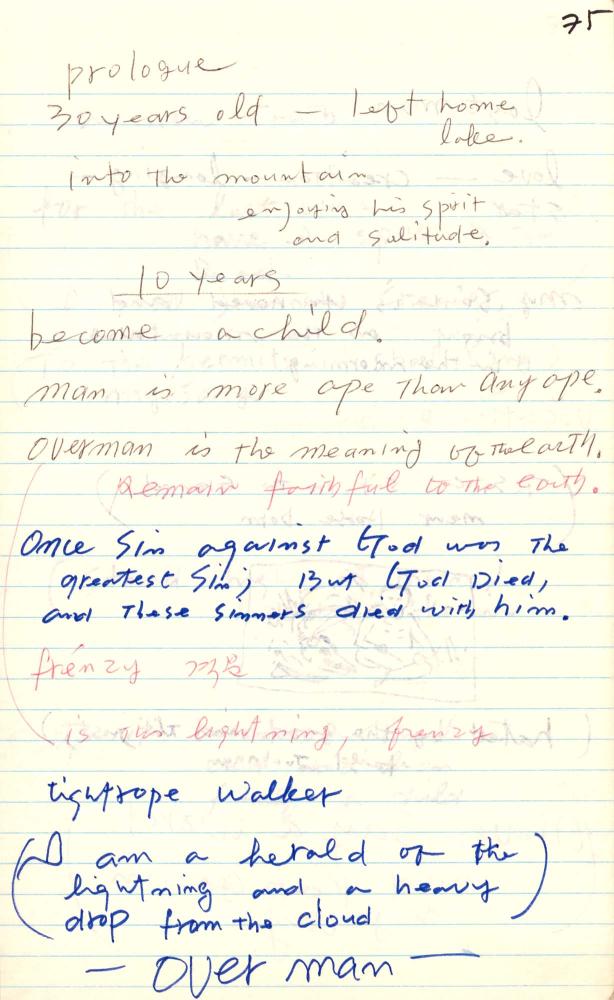 75
prologue
30 years old — left home
lake.
into the mountain
enjoying his spirit
and solitude.
10 years
become a child.
man is more ape than any ape.
Overman is the meaning of the earth.
Remain faithful to the earth.
Once Sin against God was the
greatest Sin; But God Died,
and These Sinners died with him.
frenzy
is this lightning, frenzy
tightrope walker
(I am a herald of the
lightning and a heavy
drop from the cloud)
— Over man —